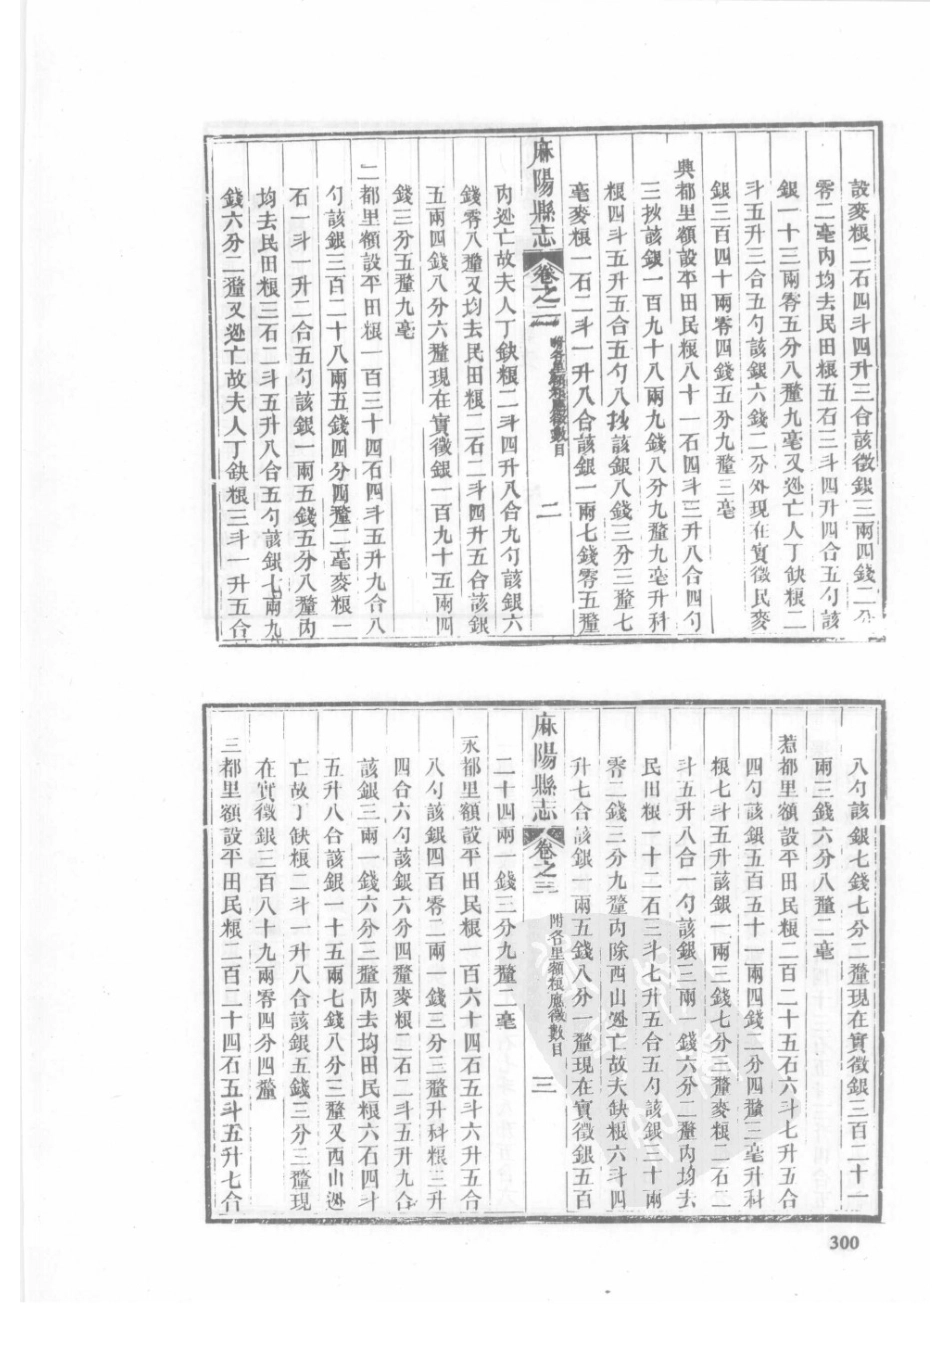 設麥粮二石四斗四升三合該徵銀三兩四錢二分
零二毫內均去民田粮五石三斗四升四合五勺該
銀一十三兩零五分八釐九毫又逃亡人丁缺粮二
斗五升三合五勺該銀六錢二分外現在實徵民麥
銀三百四十兩零四錢五分九釐三毫
興都里額設平田民粮八十一石四斗三升八合四勺
三抄該銀一百九十八兩九錢八分九釐九毫升科
粮四斗五升五合五勺八抄該銀八錢三分三釐七
毫麥粮一石二斗一升八合該銀一兩七錢零五釐
麻陽縣志 卷之三 附各里額粮應徵數目 二
內逃亡故夫人丁缺粮二斗四升八合九勺該銀六
錢零八釐又均去民田粮二石二斗四升五合該銀
五兩四錢八分六釐現在實徵銀一百九十五兩四
錢三分五釐九毫
二都里額設平田粮一百三十四石四斗五升九合八
勺該銀三百二十八兩五錢四分四釐二毫麥粮一
石一斗一升二合五勺該銀一兩五錢五分八釐內
均去民田粮三石二斗五升八合五勺該銀七兩九
錢六分二釐又逃亡故夫人丁缺粮三斗一升五合
八勺該銀七錢七分二釐現在實徵銀三百二十一
兩三錢六分八釐二毫
惹都里額設平田民粮二百二十五石六斗七升五合
四勺該銀五百五十一兩四錢二分四釐三毫升科
粮七斗五升該銀一兩三錢七分三釐麥粮二石二
斗五升八合一勺該銀三兩一錢六分二釐內均去
民田粮一十二石三斗七升五合五勺該銀三十兩
零二錢三分九釐內除西山逃亡故夫缺粮六斗四
升七合該銀一兩五錢八分一釐現在實徵銀五百
麻陽縣志 卷之三 附各里額粮應徵數目 三
二十四兩一錢三分九釐二毫
永都里額設平田民粮一百六十四石五斗六升五合
八勺該銀四百零二兩一錢三分三釐升科粮三升
四合六勺該銀六分四釐麥粮二石二斗五升九合
該銀三兩一錢六分三釐內去均田民粮六石四斗
五升八合該銀一十五兩七錢八分三釐又西山逃
亡故丁缺粮二斗一升八合該銀五錢三分三釐現
在實徵銀三百八十九兩零四分四釐
三都里額設平田民粮二百二十四石五斗五升七合
300